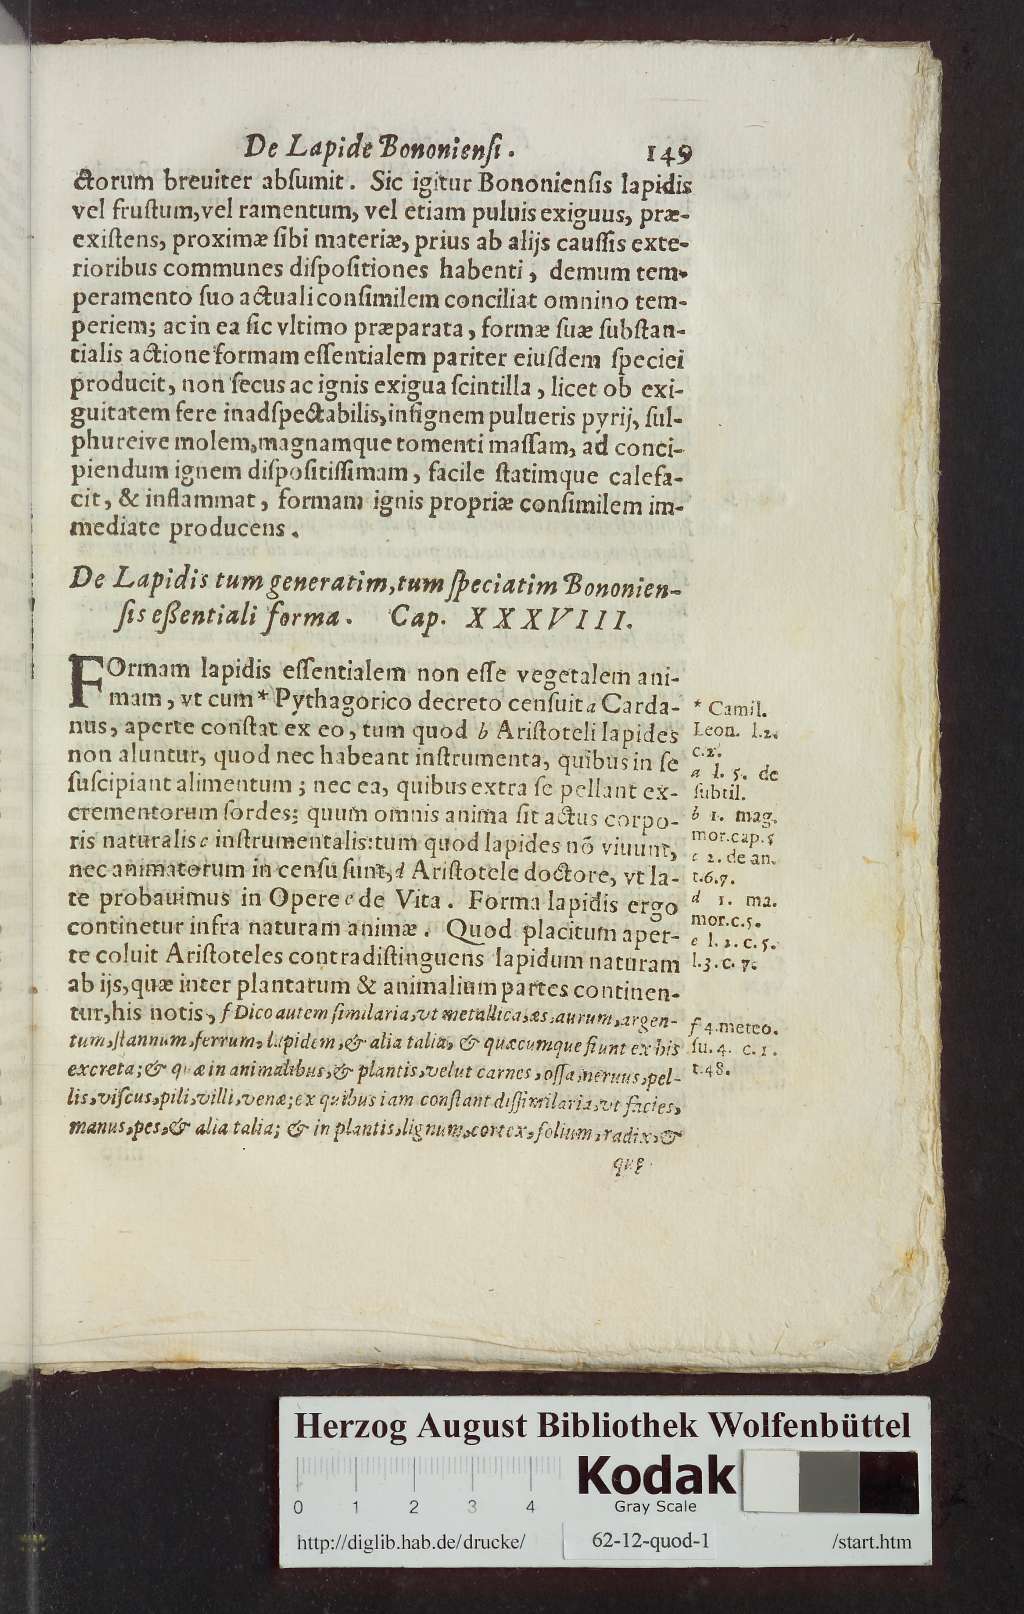 De Lapide Bononiensi. 149
ctorum breuiter absumit. Sic igitur Bononiensis lapidis
vel frustum, vel ramentum, vel etiam puluis exiguus, præ-
existens, proximæ sibi materiæ, prius ab alijs caussis exte-
rioribus communes dispositiones habenti, demum tem-
peramento suo actuali consimilem conciliat omnino tem-
periem; ac in ea sic vltimo præparata, formæ suæ substan-
tialis actione formam essentialem pariter eiusdem speciei
producit, non secus ac ignis exigua scintilla, licet ob exi-
guitatem fere inadspectabilis, insignem pulueris pyrij, sul-
phureive molem, magnamque tomenti massam, ad conci-
piendum ignem dispositissimam, facile statimque calefa-
cit, & inflammat, formam ignis propriæ consimilem im-
mediate producens.
De Lapidis tum generatim, tum speciatim Bononien-
sis essentiali forma. Cap. XXXVIII.
FOrmam lapidis essentialem non esse vegetalem ani-
mam, vt cum * Pythagorico decreto censuit a Carda-
nus, aperte constat ex eo, tum quod b Aristoteli lapides
non aluntur, quod nec habeant instrumenta, quibus in se
suscipiant alimentum; nec ea, quibus extra se pellant ex-
crementorum sordes: quum omnis anima sit actus corpo-
ris naturalis c instrumentalis: tum quod lapides nõ viuunt,
nec animatorum in censu sunt, d Aristotele doctore, vt la-
te probauimus in Opere e de Vita. Forma lapidis ergo
continetur infra naturam animæ. Quod placitum aper-
te coluit Aristoteles contradistinguens lapidum naturam
ab ijs, quæ inter plantarum & animalium partes continen-
tur, his notis, f Dico autem similaria, vt metallica, æs, aurum, argen-
tum, stannum, ferrum, lapidem, & alia talia, & quæcumque fiunt ex his
excreta; & quæ in animalibus, & plantis, velut carnes, ossa, neruus, pel-
lis, viscus, pili, villi, venæ; ex quibus iam constant dissimilaria, vt facies,
manus, pes, & alia talia; & in plantis, lignum, cortex, folium, radix, &
quę
* Camil.
Leon. l.2.
c.2.
a l. 5. de
subtil.
b 1. mag.
mor.cap.5
c 2. de an.
t.6.7.
d 1. ma.
mor.c.5.
e l. 2. c. 5.
l.3. c. 7.
f 4.meteo.
su. 4. c. 1.
t.48.
Herzog August Bibliothek Wolfenbüttel
0 1 2 3 4
Kodak
Gray Scale
http://diglib.hab.de/drucke/ 62-12-quod-1 /start.htm